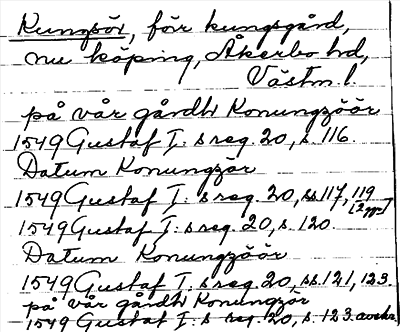 Kungsör, förr kungsgård,
nu köping, Åkerbo hd,
Västm. l.
på vår gårdh Konungzöör
1549 Gustaf I:s reg. 20, s. 116.
Datum Konungzör
1549 Gustaf I:s reg. 20, ss. 117, 119 [2 ggr]
1549 Gustaf I:s reg. 20, s. 120.
Datum Konungzöör
1549 Gustaf I:s reg. 20, ss. 121, 123.
på vår gårdh Konungzör
1549 Gustaf I:s reg. 20, s. 123.